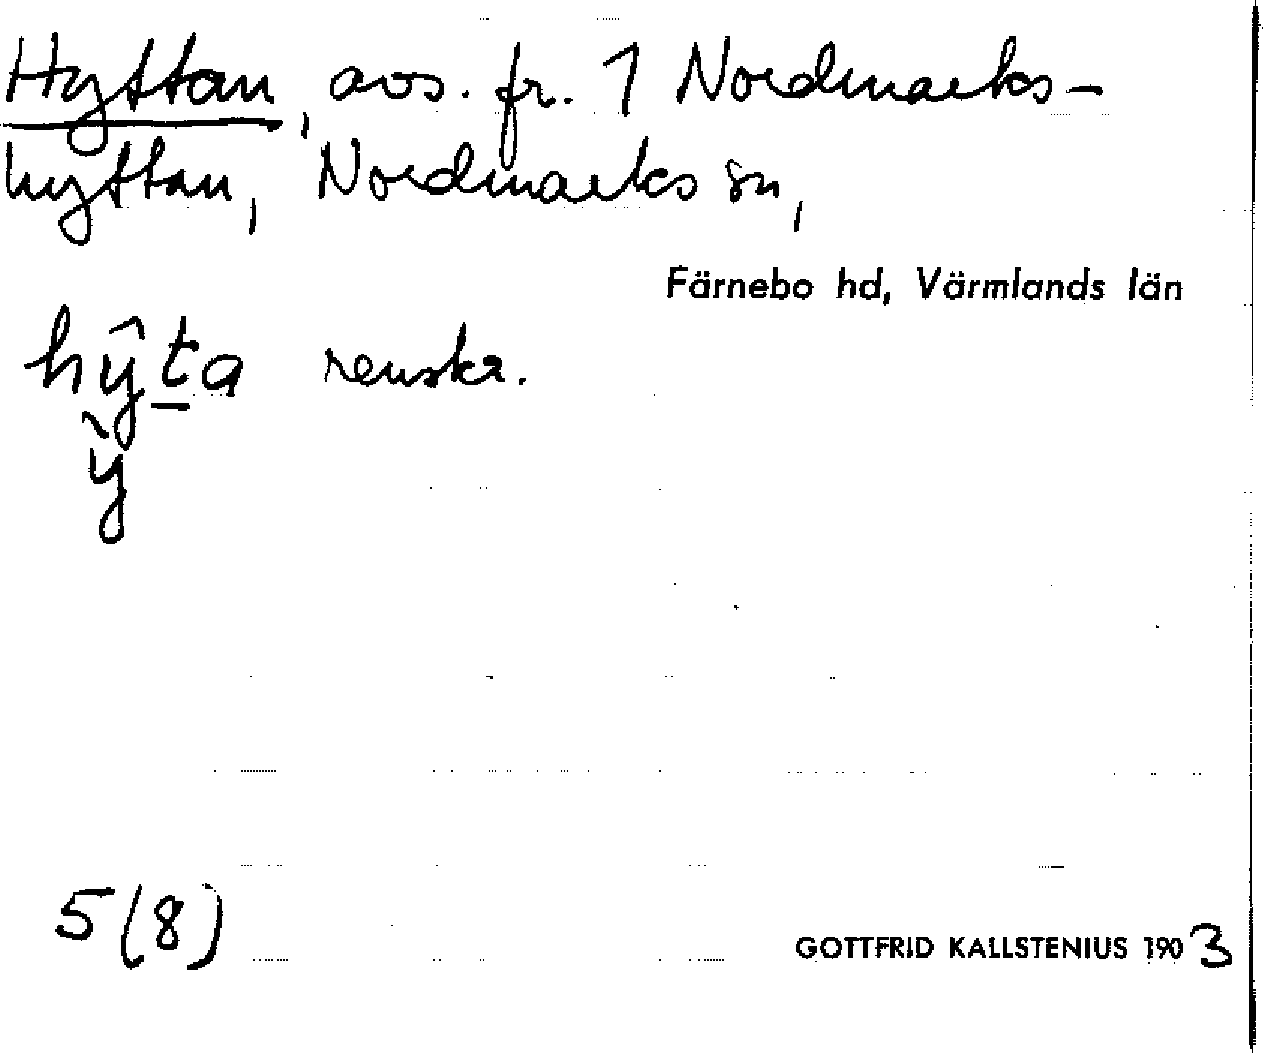 Hyttan, avs. fr. 1 Nordmarks-
hyttan, Nordmarks sn,
Färnebo hd, Värmlands län
hŷta renskr.
ỳ
5(8)
GOTTFRID KALLSTENIUS 1903